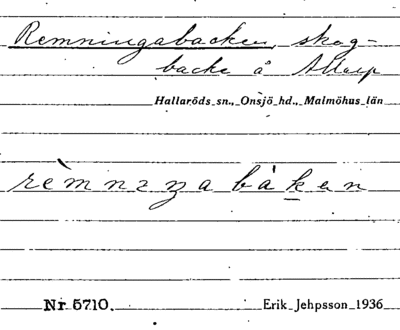 Remningabacken, skog-
backe å Allarp
Hallaröds sn., Onsjö hd., Malmöhus län
rèmnıŋa bàkɛn
Nr 5710. Erik Jehpsson 1936